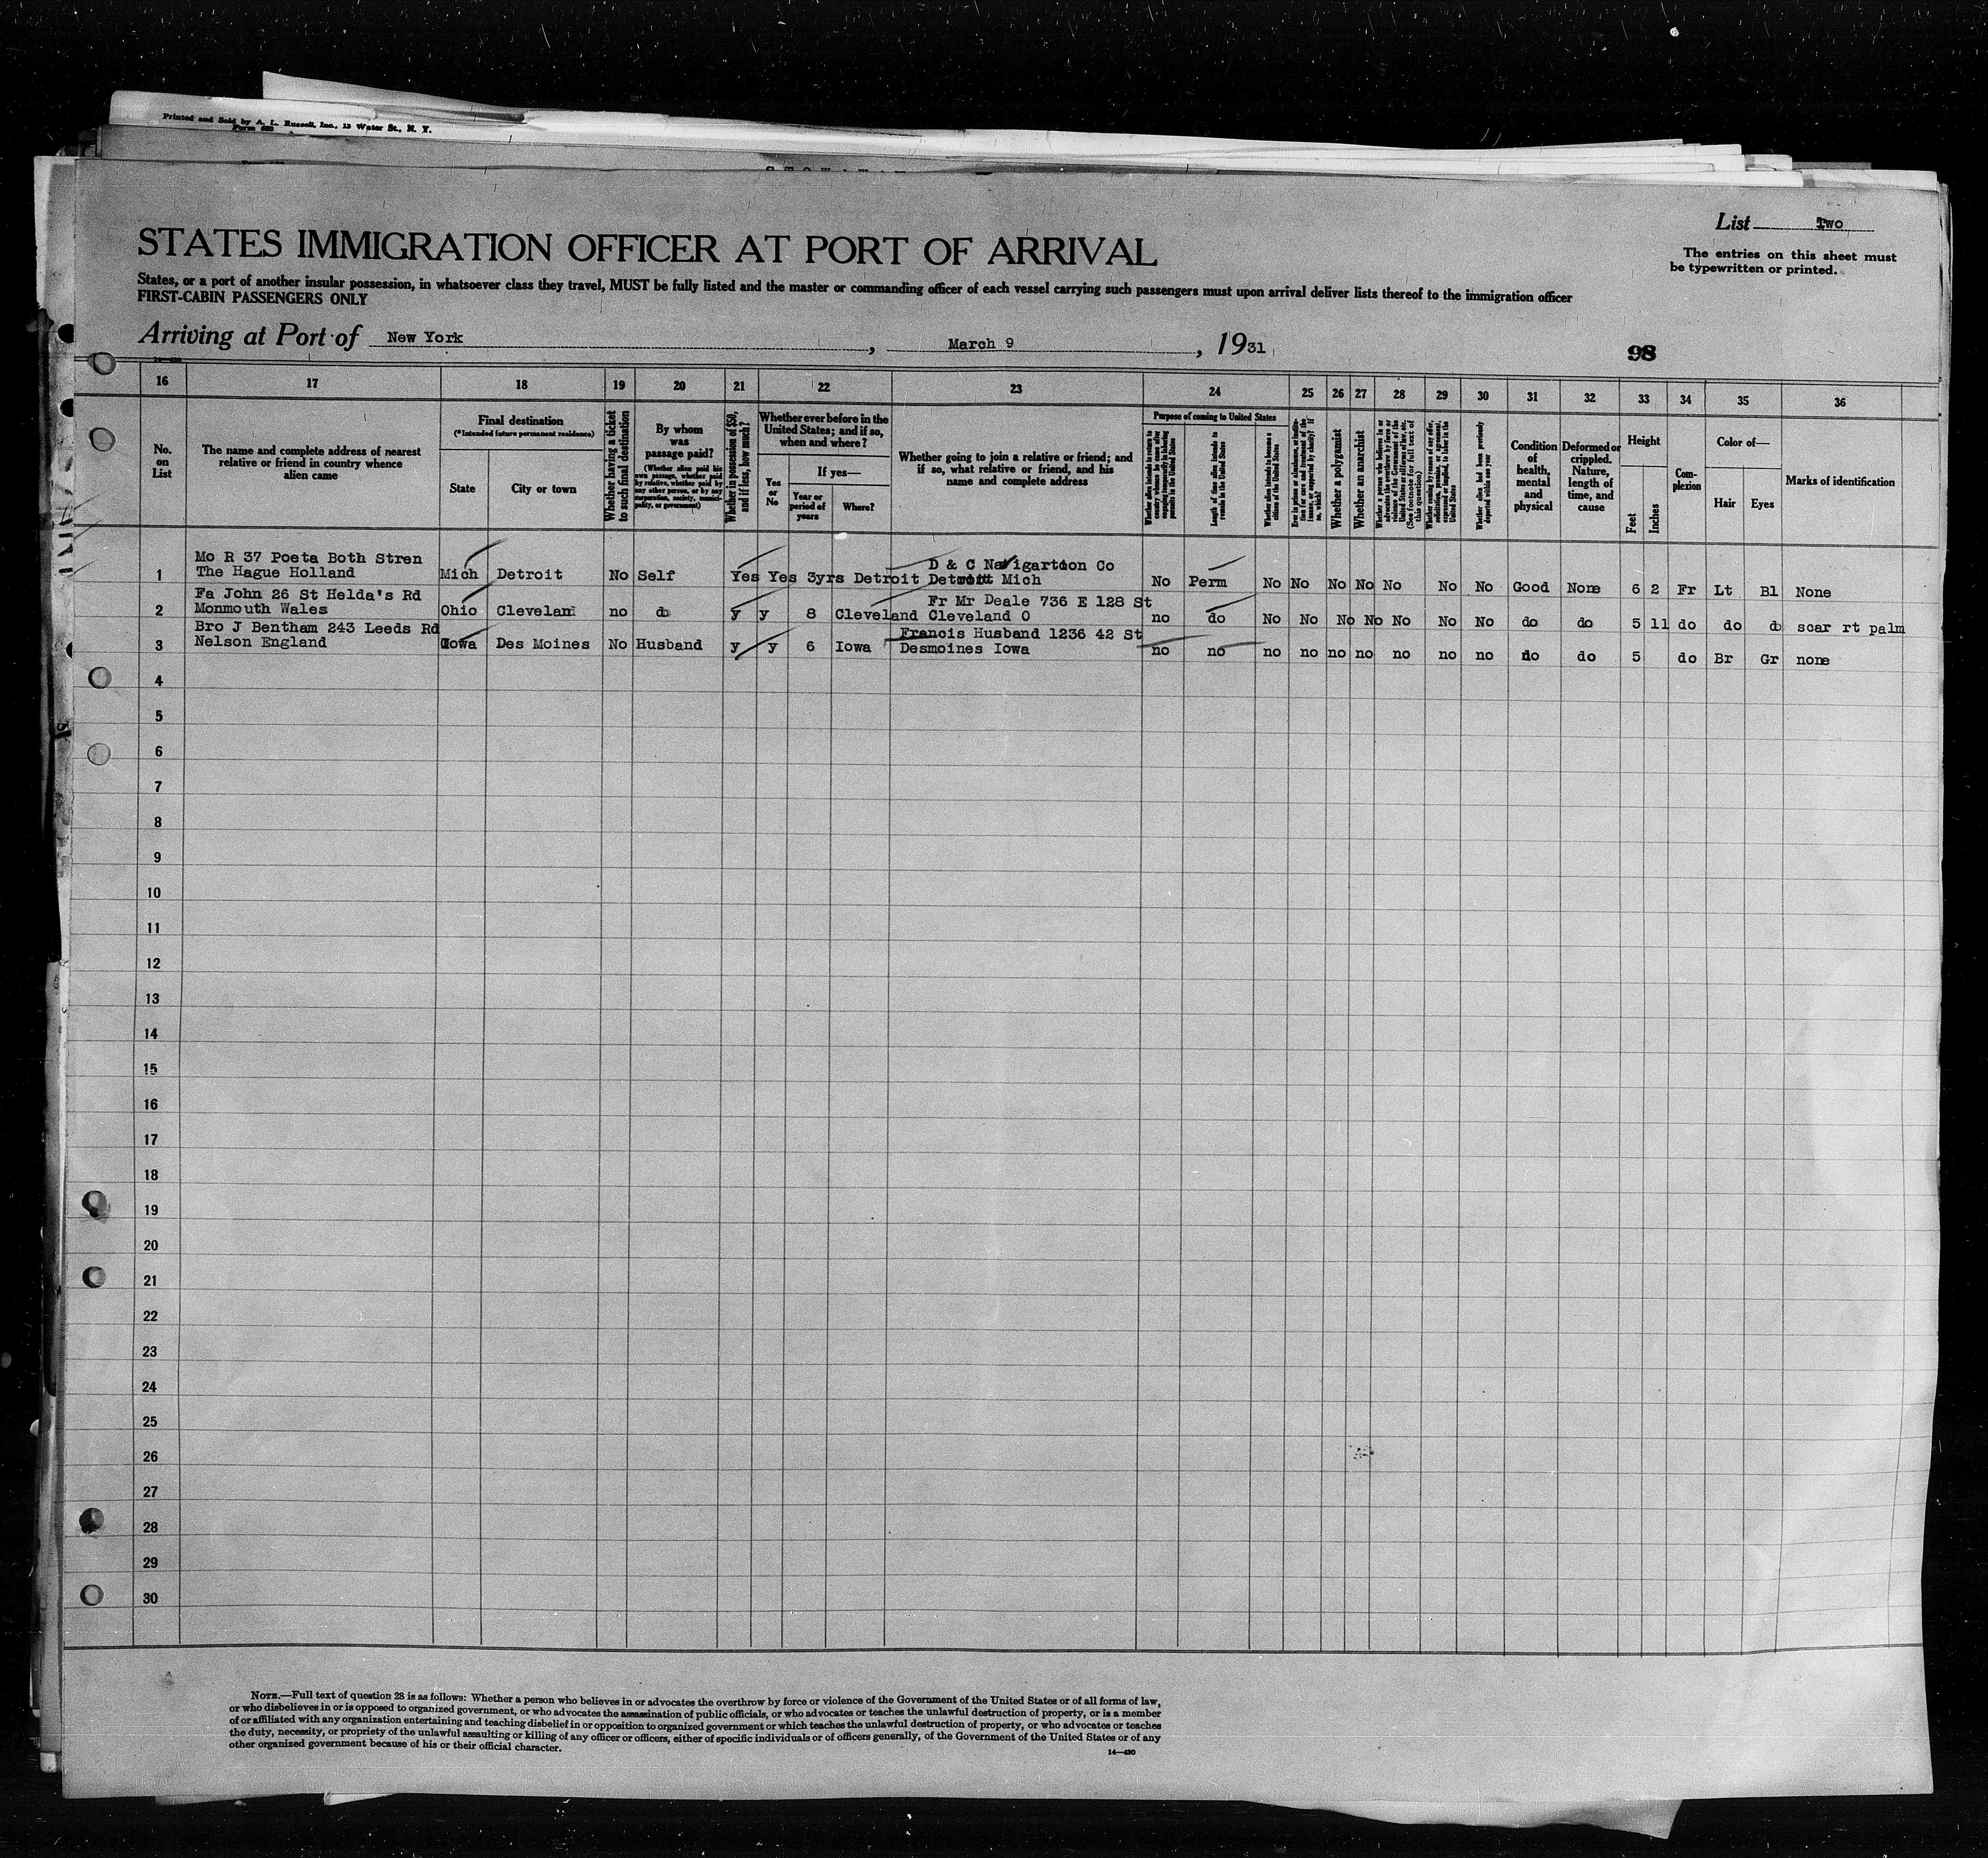 Printed and Sold by A. L. Russell, Inc., 13 Water St., N. Y.
Form 630
List Two
The entries on this sheet must
be typewritten or printed.
STATES IMMIGRATION OFFICER AT PORT OF ARRIVAL
States, or a port of another insular possession, in whatsoever class they travel, MUST be fully listed and the master or commanding officer of each vessel carrying such passengers must upon arrival deliver lists thereof to the immigration officer
FIRST-CABIN PASSENGERS ONLY
Arriving at Port of New York, March 9, 1931
98
16 17 18 19 20 21 22 23 24 25 26 27 28 29 30 31 32 33 34 35 36
No. on List
The name and complete address of nearest relative or friend in country whence alien came
Final destination
(*Intended future permanent residence)
State
City or town
Whether having a ticket to such final destination
By whom was passage paid?
(Whether alien paid his own passage, whether paid by relative, whether paid by any other person, or by any corporation, society, municipality, or government)
Whether in possession of $50, and if less, how much?
Whether ever before in the United States; and if so, when and where?
Yes or No
If yes—
Year or period of years
Where?
Whether going to join a relative or friend; and if so, what relative or friend, and his name and complete address
Purpose of coming to United States
Length of time alien intends to remain in the United States
Whether alien intends to become a citizen of the United States
Whether a polygamist
Whether an anarchist
(See footnote for full text of this question)
Whether alien had been previously deported within one year
Condition of health, mental and physical
Deformed or crippled. Nature, length of time, and cause
Height
Feet
Inches
Complexion
Color of—
Hair
Eyes
Marks of identification
1 Mo R 37 Poeta Both Stren The Hague Holland Mich Detroit No Self Yes Yes 3yrs Detroit D & C Navigartoon Co Detroit Mich No Perm No No No No No No No Good None 6 2 Fr Lt Bl None
2 Fa John 26 St Helda's Rd Monmouth Wales Ohio Cleveland no do y y 8 Cleveland Fr Mr Deale 736 E 128 St Cleveland O no do No No No No No No No do do 5 11 do do do scar rt palm
3 Bro J Bentham 243 Leeds Rd Nelson England Iowa Des Moines No Husband y y 6 Iowa Francis Husband 1236 42 St Desmoines Iowa no no no no no no no no no do do 5 do Br Gr none
4
5
6
7
8
9
10
11
12
13
14
15
16
17
18
19
20
21
22
23
24
25
26
27
28
29
30
NOTE.—Full text of question 28 is as follows: Whether a person who believes in or advocates the overthrow by force or violence of the Government of the United States or of all forms of law,
or who disbelieves in or is opposed to organized government, or who advocates the assassination of public officials, or who advocates or teaches the unlawful destruction of property, or is a member
of or affiliated with any organization entertaining and teaching disbelief in or opposition to organized government or which teaches the unlawful destruction of property, or who advocates or teaches
the duty, necessity, or propriety of the unlawful assaulting or killing of any officer or officers, either of specific individuals or of officers generally, of the Government of the United States or of any
other organized government because of his or their official character.
14—430